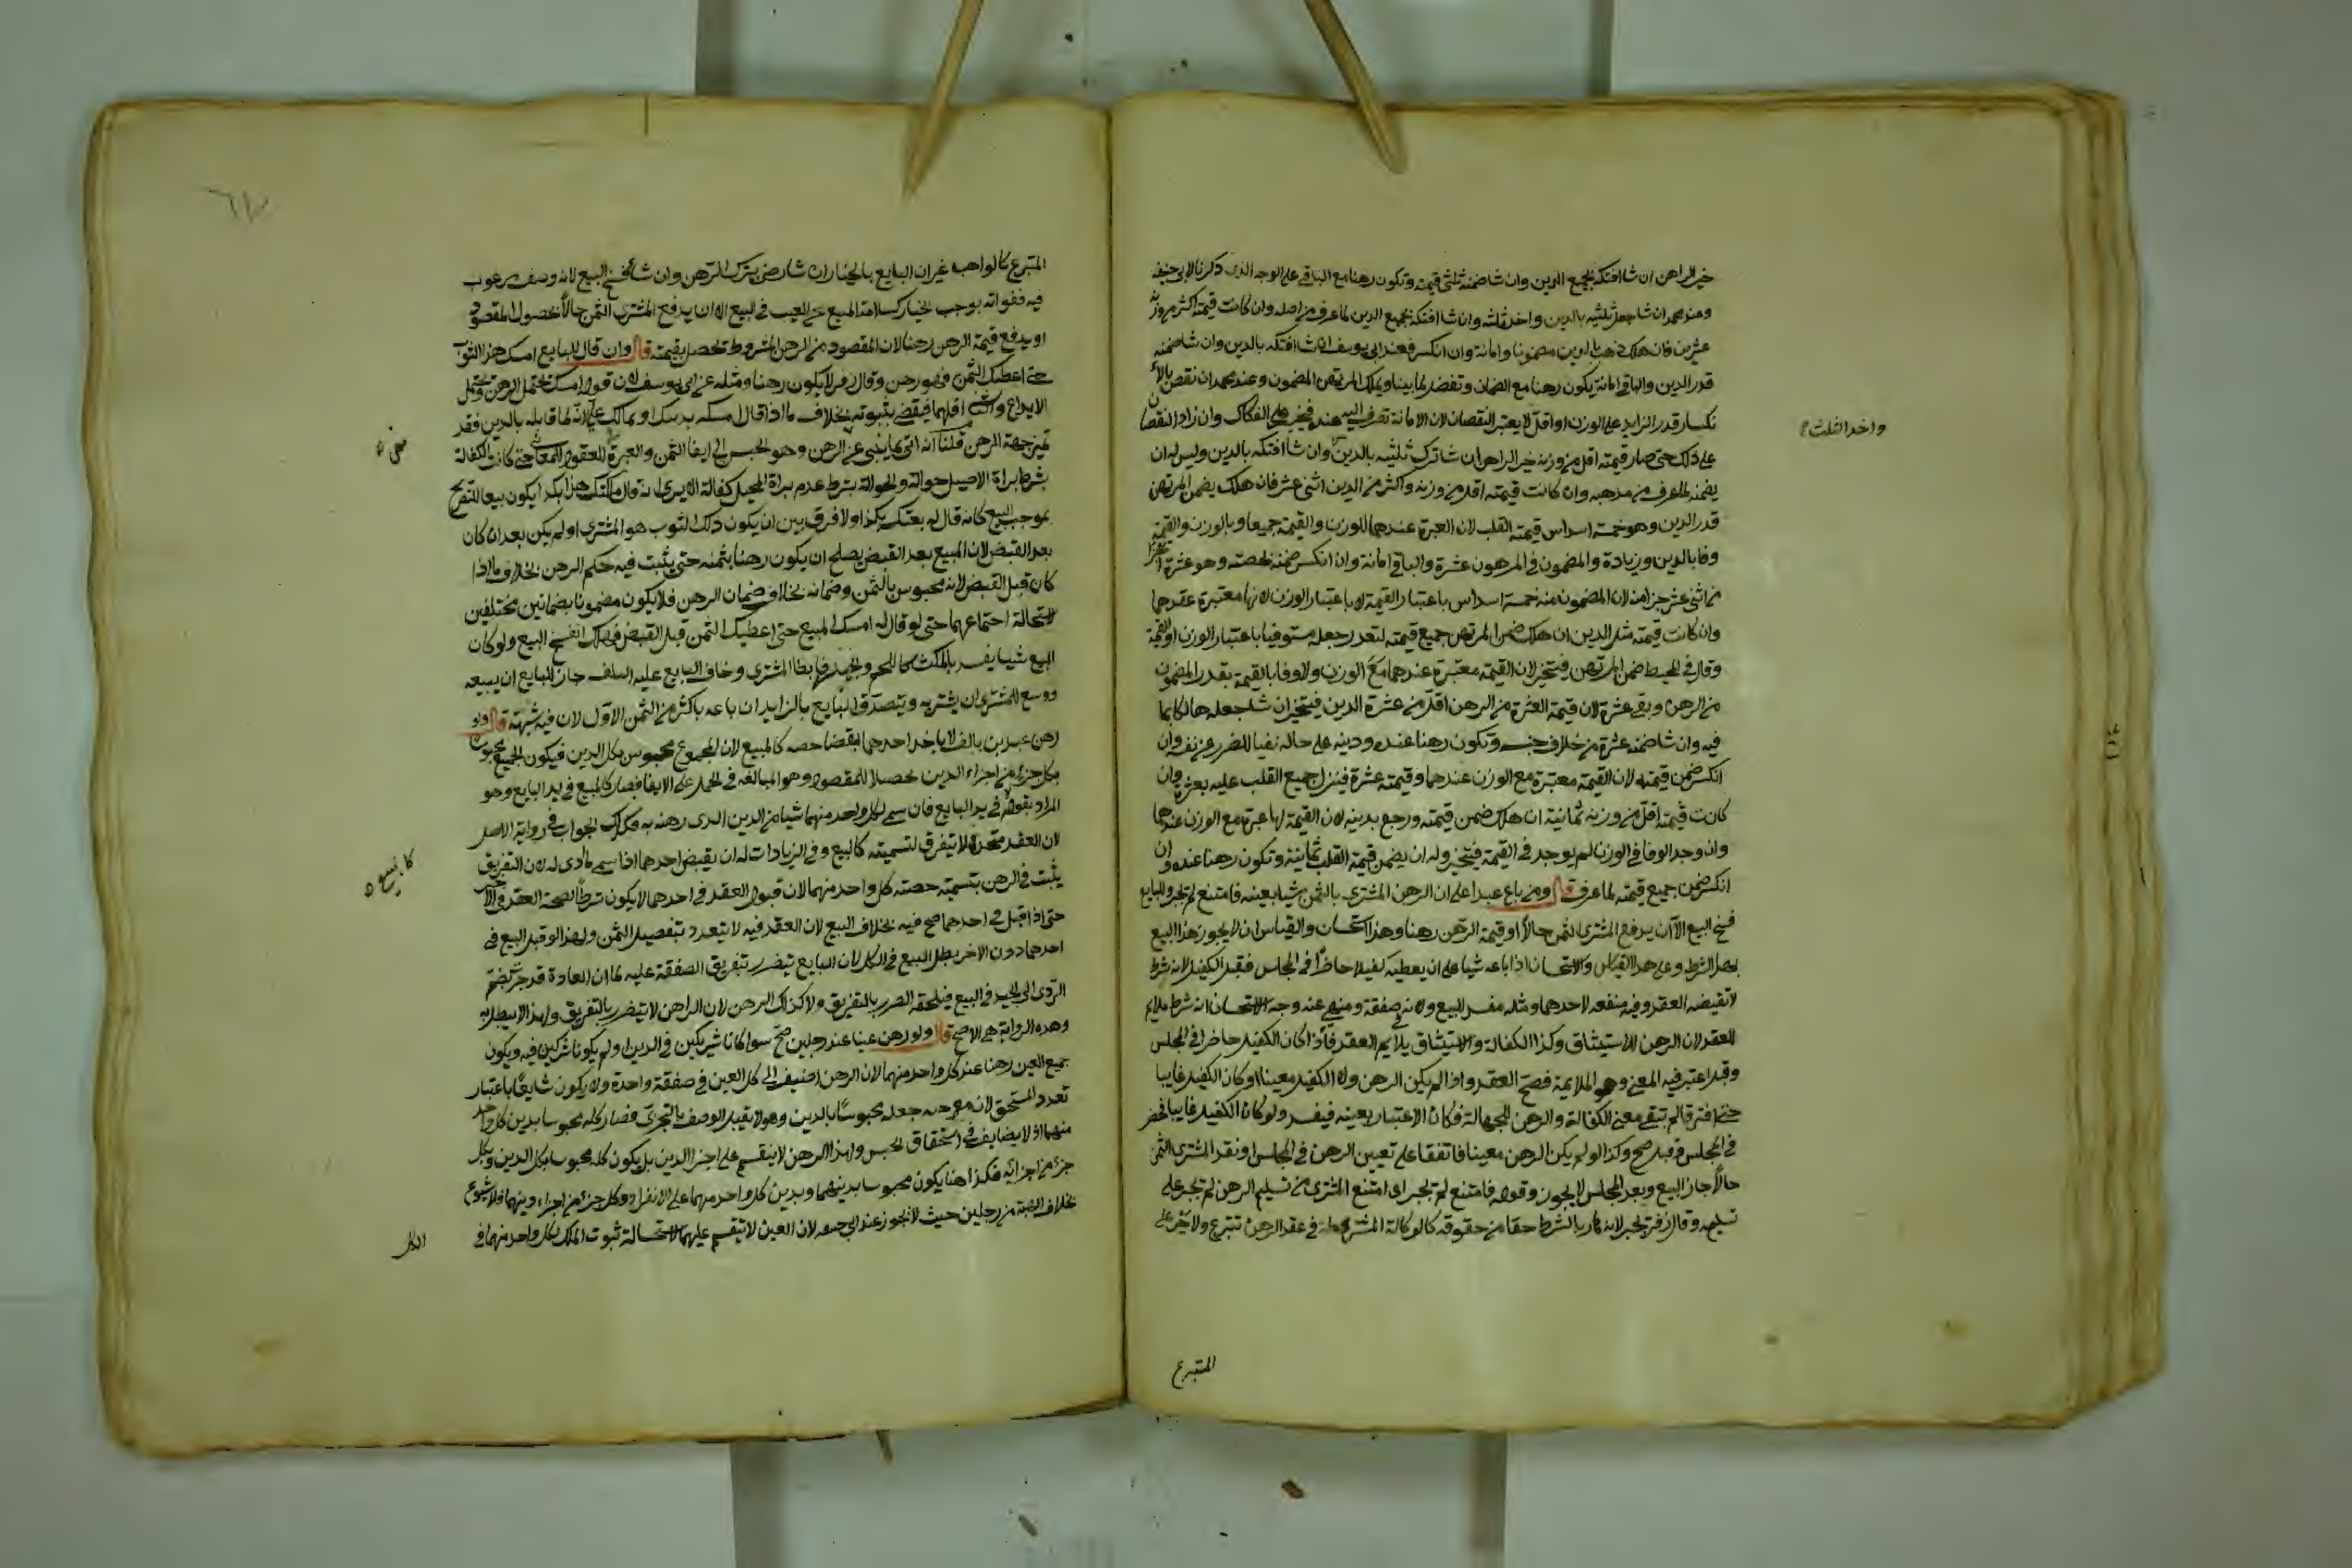 خير الراهن ان شا افتكه بجميع الدين وان شا ضمنه ثلثي قيمته وتكون رهنا مع الباقي على الوجه الذي ذكرنا لابي حنيفه
وعند محمد ان شا جعل ثلثيه بالدين واخذ ثلثه وان شا افتكه بجميع الدين لما عرف من اصله وان كانت قيمته اكثر من وزنه
عشرين فان هلك ذهب بالدين مضمونا وامانة وان انكسر فعند ابي يوسف ان شا افتكه بالدين وان شا ضمنه
قدر الدين والباقي امانة يكون رهنا مع الضمان وتفضد لما بينا ويملك المرتهن المضمون وعند محمد ان نقص بالا
نكسار قدر الزايد على الوزن او اقل لا يعتبر النقصان لان الامانة تصرف اليه عنده فيجبر على الفكاك وان زاد النقصان
على ذلك حتى صار قيمته اقل من وزنه خير الراهن ان شا ترك ثلثيه بالدين وان شا افتكه بالدين وليس له ان
يضمنه لما عرف من مذهبه وان كانت قيمته اقل من وزنه واكثر من الدين اثني عشر فان هلك يضمن المرتهن
قدر الدين وهو خمسة اسداس قيمته القلب لان العبرة عندهما للوزن والقيمة جميعا وبالوزن والقيمة
وفا بالدين وزيادة والمضمون في المرهون عشرة والباقي امانة وان انكسر ضمنه بحصته وهو عشرة اجزا
من اثني عشر جزا منه لان المضمون منه خمسة اسداس باعتبار القيمة لا باعتبار الوزن لانها معتبرة عندهما
وان كانت قيمته مثل الدين ان هلك ضمن المرتهن جميع قيمته لتعذر جعله مستوفيا باعتبار الوزن او القيمة
وقال في المحيط ضمن المرتهن فيتخير لان القيمة معتبرة عندهما مع الوزن ولا وفا بالقيمة بقدر المضمون
من الرهن وبقي عشرة لان قيمة العشرة من الرهن اقل من عشرة الدين فيتخير ان شا جعله هالكا بما
فيه وان شا ضمنه عشرة من خلاف جنسه وتكون رهنا عنده ودينه على حاله نفيا للضرر عن نفسه وان
انكسر ضمن قيمته لان القيمة معتبرة مع الوزن عندهما وقيمته عشرة فينزل جميع القلب عليه بعشرة وان
كانت قيمته اقل من وزنه ثمانية ان هلك ضمن قيمته ورجع بدينه لان القيمة لها عبرة مع الوزن عندهما
وان وجد الوفا في الوزن لم يوجد في القيمة فيتخير وله ان يضمن قيمة القلب ثمانية وتكون رهنا عنده وان
انكسر ضمن جميع قيمته لما عرف قال ومن باع عبدا على ان الرهن المشتري بالثمن شيا بعينه فامتنع لم يجبر وللبايع
فسخ البيع الا ان يدفع المشتري الثمن حالا او قيمة الرهن رهنا وهذا استحسان والقياس ان لا يجوز هذا البيع
بهذا الشرط وعلى هذا القياس والاستحسان اذا باعه شيا على ان يعطيه كفيلا حاضرا في المجلس فقبل الكفيل لانه شرط
لا تقيضه العقد وفيه منفعه لاحدهما ومثله مفسد للبيع ولانه صفقة في صفقة ومنهي عنه وجه الاستحسان انه شرط ملايم
للعقد لان الرهن للاستيثاق وكذا الكفالة والاستيثاق يلايم العقد فاذا كان الكفيل حاضرا في المجلس
وقبل اعتبر فيه المعنى وهو الملايمة فصح العقد واذا لم يكن الرهن ولا الكفيل معينا او كان الكفيل غايبا
حتى افترقا لم تبقى معنى الكفالة والرهن للجهالة فكان الاعتبار بعينه فيفسد ولو كان الكفيل غايبا فحضر
في المجلس وقبل صح وكذا لو لم يكن الرهن معينا فاتفقا على تعيين الرهن في المجلس او نقد المشتري الثمن
حالا جاز البيع وبعد المجلس لا يجوز وقوله فامتنع لم يجبر اي امتنع المشتري من تسليم الرهن لم يجبر على
تسليمه وقال زفر يجبر لانه صار بالشرط حقا من حقوقه كالوكالة المشروطة في عقد الرهن تبرع ولا يجبر على
واخذ الثلث
المتبرع
المتبرع كالواهب غير ان البايع بالخيار ان شا رضي بترك الرهن وان شا فسخ البيع لانه وصف مرغوب
فيه ففواته يوجب الخيار كسلامة المبيع عن العيب في البيع الا ان يدفع المشتري الثمن حالا لحصول المقصود
او يدفع قيمة الرهن رهنا لان المقصود من الرهن المشروط تحصل بقيمته قال وان قال للبايع امسك هذا الثوب
حتى اعطيك الثمن فهو رهن وقال زفر لا يكون رهنا ومثله عن ابي يوسف لان قوله امسك يحتمل الرهن ويحتمل
الايداع والثاني اقلهما فيقضى بثبوته بخلاف ما اذا قال امسكه بدينك او بمالك علي لانه لما قابله بالدين فقد
عين جهة الرهن قلنا انه اتى بما ينبي عن الرهن وهو الحبس الى ايفا الثمن والعبرة للعقود للمعاني حتى كانت الكفالة
بشرط براة الاصيل حوالة والحوالة بشرط عدم براة المحيل كفالة الا يرى انه لو قال ملكتك هذا بكذا يكون بيعا للتصريح
بموجب البيع كانه قال له بعتك بكذا ولا فرق بين ان يكون ذلك الثوب هو المشترى او لم يكن بعد ان كان
بعد القبض لان المبيع بعد القبض يصلح ان يكون رهنا بثمنه حتى يثبت فيه حكم الرهن بخلاف ما اذا
كان قبل القبض لانه محبوس بالثمن وضمانه بخلاف ضمان الرهن فلا يكون مضمونا بضمانين مختلفين
لاستحالة اجتماعهما حتى لو قال له امسك المبيع حتى اعطيك الثمن قبل القبض فهلك انفسخ البيع ولو كان
البيع شيا يفسد بالمكث كاللحم والجمد فابطا المشتري وخاف البايع عليه التلف جاز للبايع ان يبيعه
ووسع للمشتري ان يشتريه ويتصدق البايع بالزايد ان باعه باكثر من الثمن الاول لان فيه شبهة قال ولو
رهن عبدين بالف لا ياخذ احدهما بقضا حصه كالمبيع لان المجموع محبوس بكل الدين فيكون الجميع محبوسا
بكل جزء من اجزاء الدين تحصيلا للمقصود وهو المبالغه في الحمل على الايفا فصار كالمبيع في يد البايع وهو
المراد بقوله في يد البايع فان سمى لكل واحد منهما شيا من الدين الذي رهنه به فكذلك الجواب في رواية الاصل
لان العقد متحد لا يتفرق لتسميته كالبيع وفي الزيادات له ان يقبض احدهما اذا سمى ما ادى له لان التفريق
يثبت في الرهن بتسميته حصته كل واحد منهما لان قبول العقد في احدهما لا يكون شرطا لصحة العقد في الاخر
حتى اذا قبل في احدهما صح فيه بخلاف البيع لان العقد فيه لا يتعدد بتفصيل الثمن ولهذا لو قبل البيع في
احدهما دون الاخر بطل البيع في الكل لان البايع يتضرر بتفريق الصفقة عليه لما ان العادة قد جرت بضم
الردى الى الجيد في البيع فيلحقه الضرر بالتفريق ولا كذلك الرهن لان الراهن لا يتضرر بالتفريق ولهذا لا يبطل به
وهذه الرواية هي الاصح قال ولو رهن عينا عند رجلين صح سوا كانا شريكين في الدين او لم يكونا شركين فيه ويكون
جميع العين رهنا عند كل واحد منهما لان الرهن اضيف الى كل العين في صفقة واحدة ولا يكون شايعا باعتبار
تعدد المستحق لان موجبه جعله محبوسا بالدين وهو لا يقبل الوصف بالتجزي فصار كله محبوسا بدين كل واحد
منهما اذ لا يضايف في استحقاق الحبس ولهذا الرهن لا ينقسم على اجزا الدين بل يكون كله محبوسا بكل الدين وبكل
جزء من اجزائه فكذا هنا يكون محبوسا بدينهما وبدين كل واحد منهما على الانفراد وكل جزء من اجزاء دينهما فلا شيوع
بخلاف الهبة من رجلين حيث لا تجوز عند ابي حنيفة لان العين لا تنقسم عليهما لاستحالة ثبوت الملك لكل واحد منهما في
كالبيع
الكل